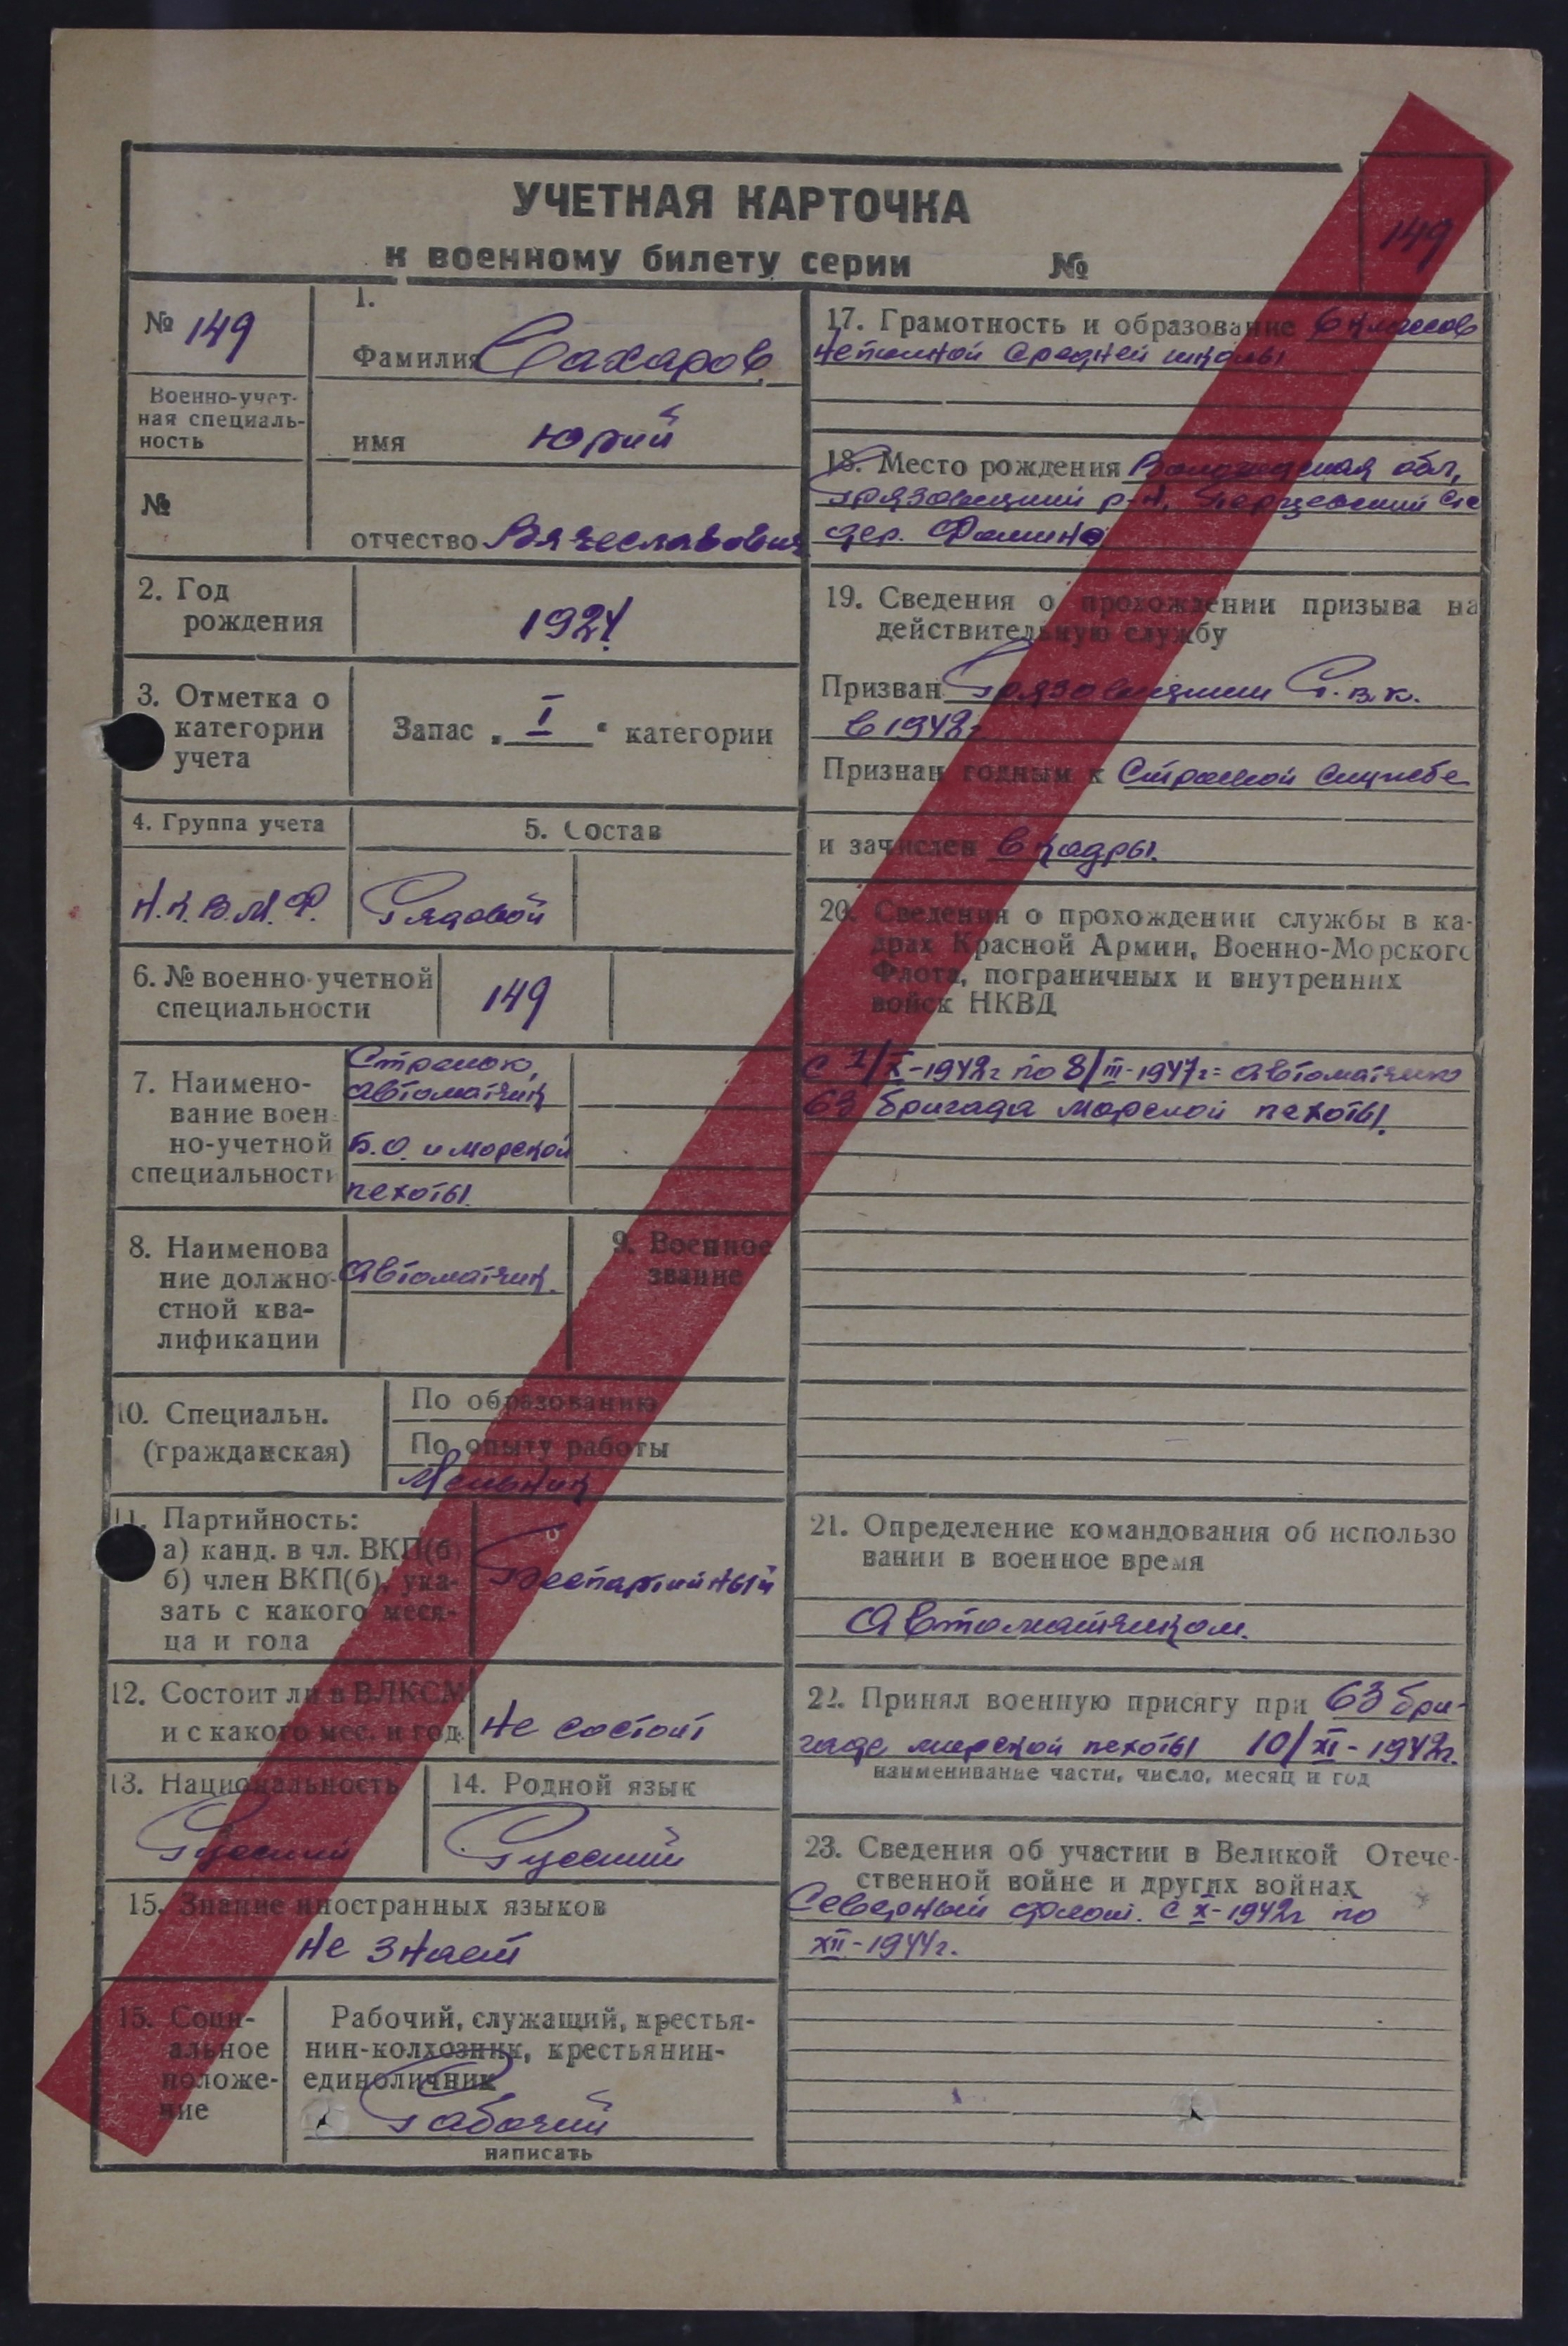 УЧЕТНАЯ КАРТОЧКА
к военному билету серии №
149
№ 149
Военно-учет-
ная специаль-
ность
№
1.
Фамилия Сахаров
имя Юрий
отчество Вячеславович
2. Год
рождения
1924
3. Отметка о
категории
учета
Запас „ I “ категории
4. Группа учета
5. Состав
Н.К.В.М.Ф.
Рядовой
6. № военно-учетной
специальности
149
7. Наимено-
вание воен
но-учетной
специальности
Стрелок,
автоматчик
Б.О. и морской
пехоты
8. Наименова
ние должно-
стной ква-
лификации
Автоматчик.
9. Военное
звание
10. Специальн.
(гражданская)
По образованию
По опыту работы
Мельник
11. Партийность:
а) канд. в чл. ВКП(б
б) член ВКП(б), ука-
зать с какого меся-
ца и года
Беспартийный
12. Состоит ли в ВЛКСМ
и с какого мес. и год.
Не состоит
13. Национальность
Русский
14. Родной язык
Русский
15. Знание иностранных языков
Не знает
15. Соци-
альное
положе-
ние
Рабочий, служащий, крестья-
нин-колхозник, крестьянин-
единоличник
Рабочий
написать
17. Грамотность и образование 6 классов
неполной средней школы
18. Место рождения Вологодская обл,
Грязовецкий р-н, Перцевский с/с
дер. Фомино
19. Сведения о прохождении призыва на
действительную службу
Призван Грязовецким Р.в.к.
в 1942г
Признан годным к Строевой службе
и зачислен в кадры.
20. Сведения о прохождении службы в ка-
драх Красной Армии, Военно-Морского
Флота, пограничных и внутренних
войск НКВД
С 1/X-1942г по 8/III-1947г= автоматчик
63 бригада морской пехоты.
21. Определение командования об использо
вании в военное время
Автоматчиком.
22. Принял военную присягу при 63 бри-
гаде морской пехоты 10/XI-1942г.
наименивание части, число, месяц и год
23. Сведения об участии в Великой Отече-
ственной войне и других войнах
Северный флот. с X-1942г по
XII-1944г.